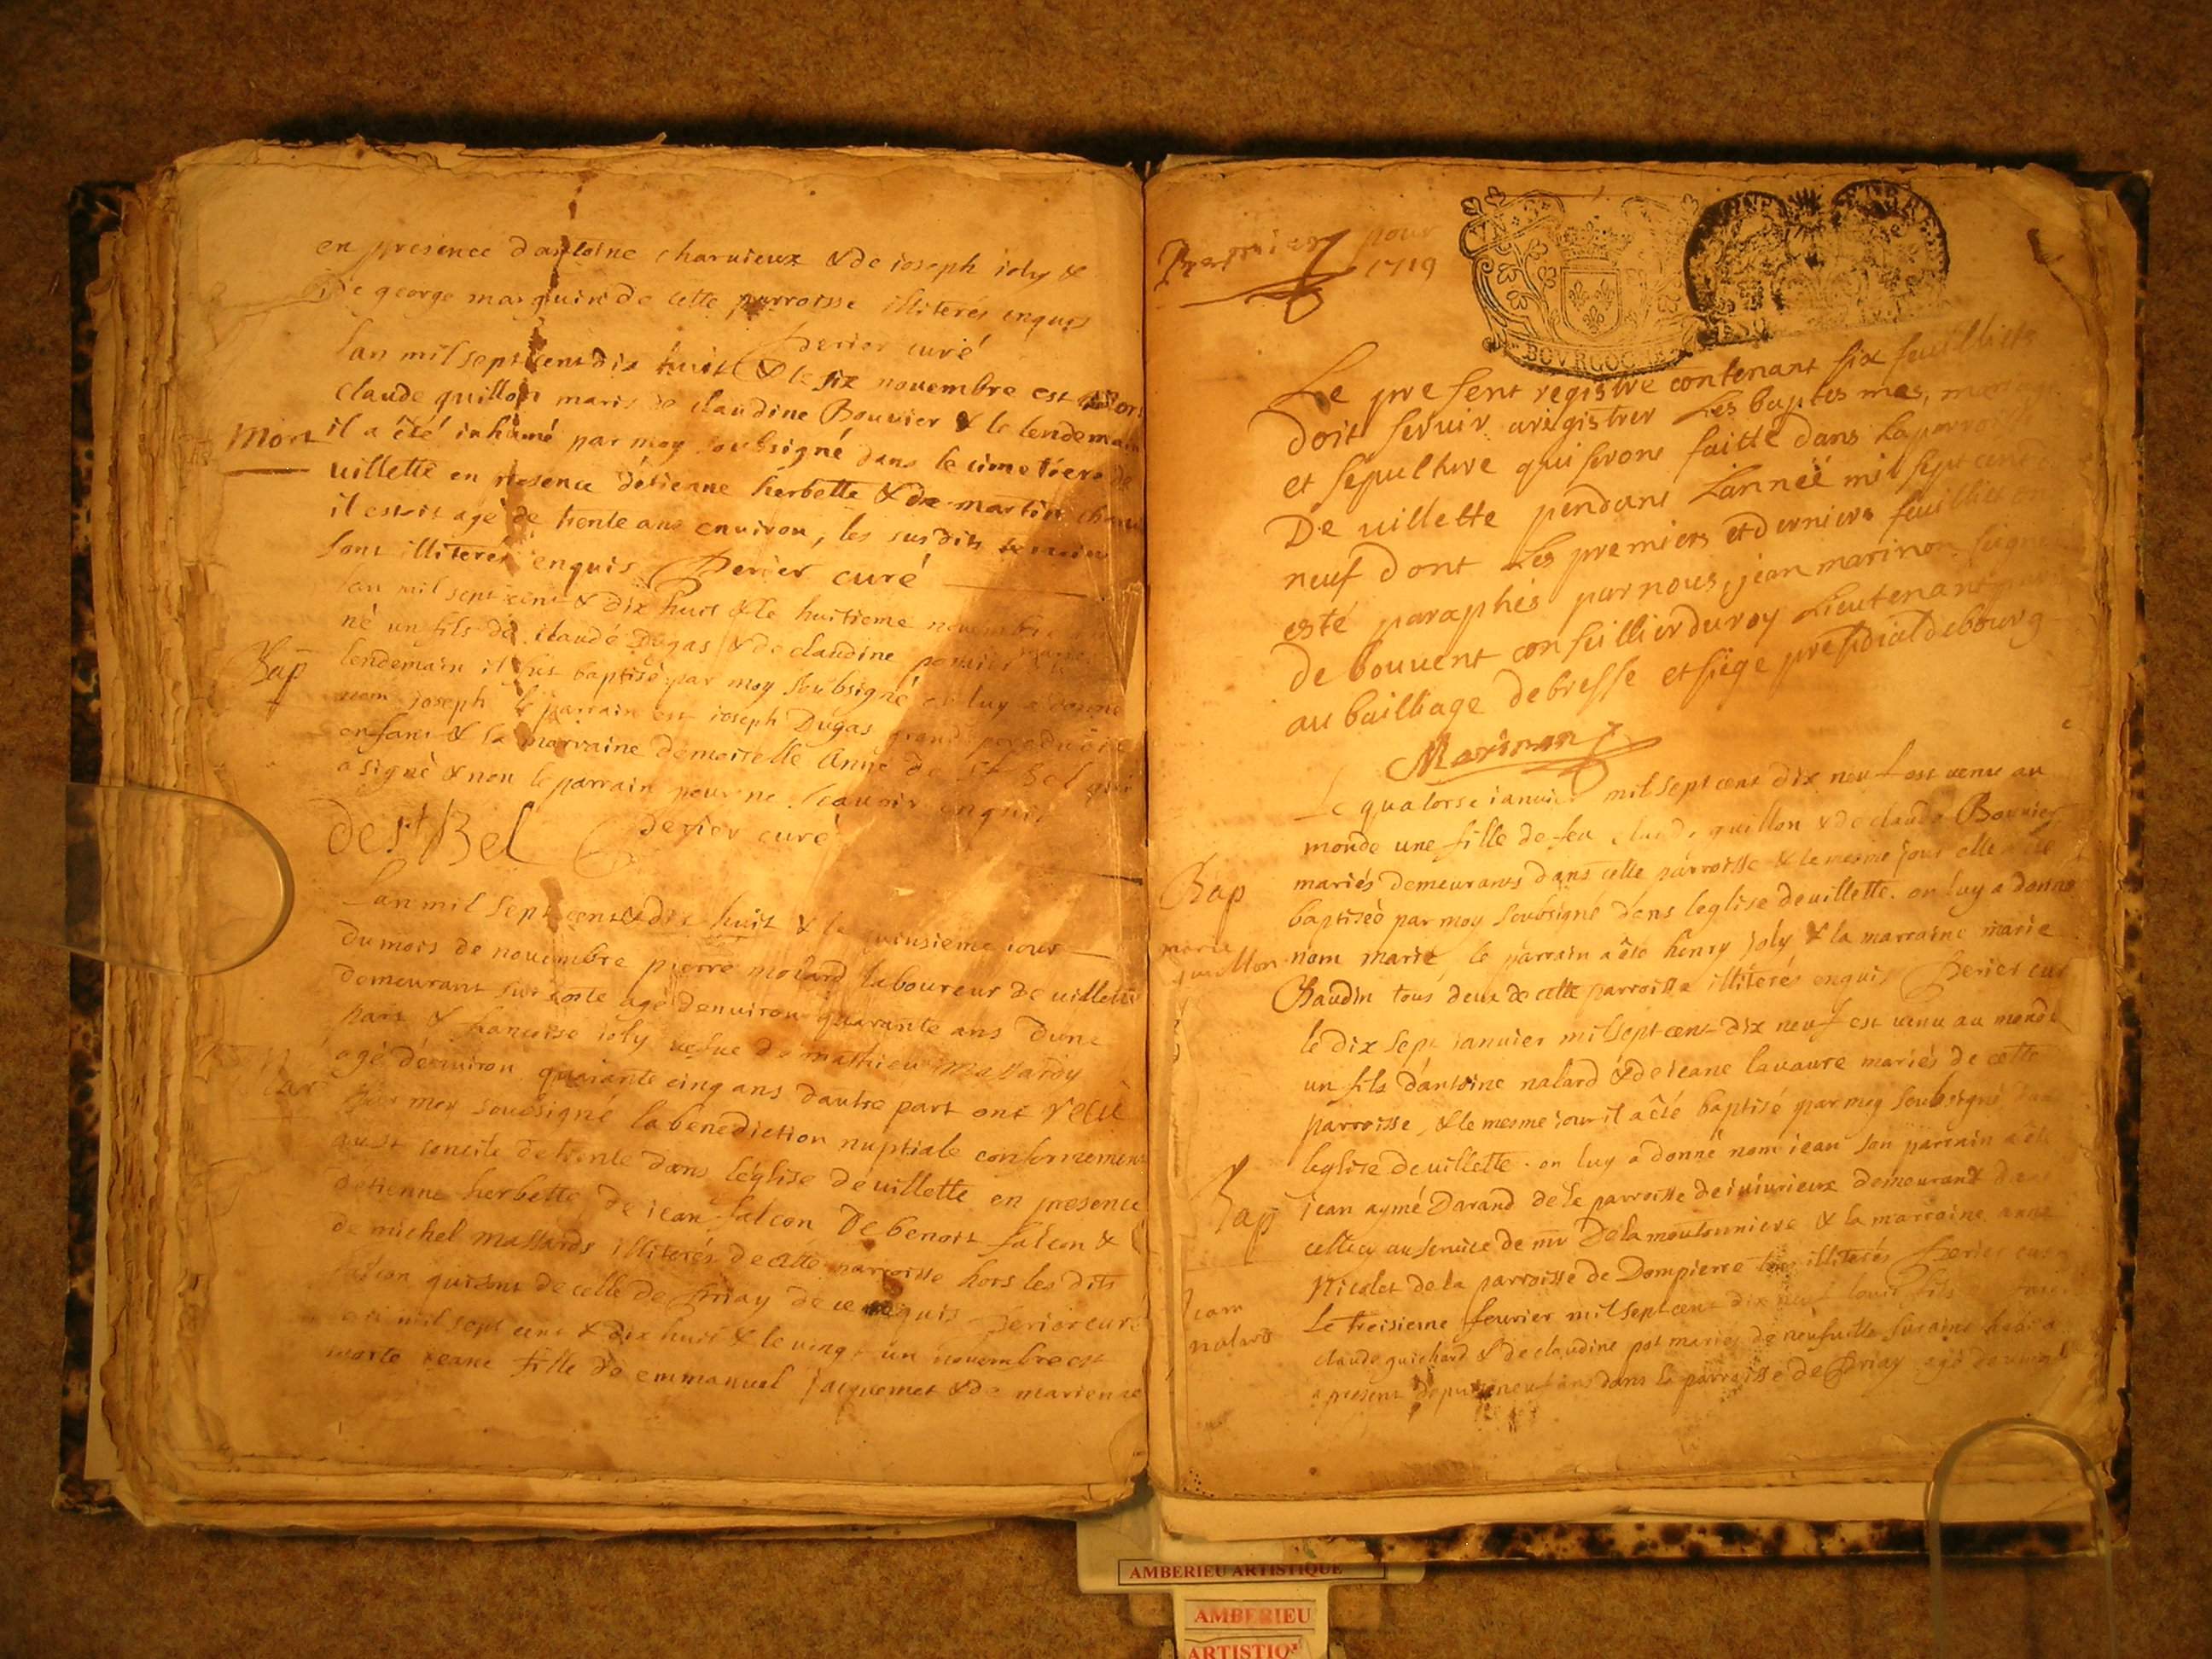 en presence dantoine charuieux & de ioseph ioly &
de george marguin de cette parroisse illiterés enquis
Perier curé
lan mil sept cent dix huit & le six nouembre est mort
claude guillon maris de claudine Bouuier & le lendemain
Mort il a êté inhumé par moy soubsigné dans le cimetiere de
uillette en presence détienne herbette & de martin
il estoit agé de trente ans enuiron, les susdits temoins
sont illiterés enquis Perier curé
lan mil sept cent & dix huit & le huitieme nouembre
né un fils de claude Dugas & de claudine perrier mariés
Bap lendemain il fut baptisé par moy soubsigné on luy a donné
nom joseph le parrain est ioseph Dugas grand pere du dit
enfant & la marraine demoiselle Anne de st Bel qui
a signé & non le parrain pour ne scauoir enquis
de st Bel Perier curé
Lan mil sept cent & dix huit & le quinsieme iour
du mois de nouembre pierre molard laboureur de uillette
demeurant sur agé denuiron quarante ans dune
part & francoise ioly uefue de mathieu massardy
agé denuiron quarante cinq ans dautre part ont recu
Mar par moy soubsigné la benediction nuptiale conformement
au st concile de trente dans léglise de uillette en presence
detienne herbette, de iean falcon De benoit falcon &
de michel massardy illiterés de cette parroisse hors les dits
falcon qui sont de celle de Priay de ce enquis Perier curé
lan mil sept cent & dix huit & le vingt un nouembre est
morte jeane fille de emmanuel jacquemet & de marie
Premier pour
1719
BOVRGOGNE
Le present registre contenant six feuilliets
doit seruir a regisstrer Les baptesmes,
et sepulture qui seront faitte dans La
De uillette pendant Lanneë mil sept cent
neuf dont Les premiers et derniers feuilliet
esté paraphés par nous, jean marinon
de bouuent conseillier du roy Lieutenant
au bailliage de bresse et siege presidial de bourg
Marinon
Le quatorse ianuier mil sept cent dix neuf est uenu au
monde une fille de feu claude guillon & de claude Bouuier
mariés demeurants dans cette parroisse & le mesme jour elle a été
Bap baptiseé par moy soubsigné dans leglise de uillette. on luy a donné
marie guillon nom marie, le parrain a êté henry joly & la marraine marie
Baudin tous deux de cette parroisse illiterés enquis Perier curé
le dix sept ianuier mil sept cent dix neuf est uenu au monde
un fils dantoine nalard & de ieane lauaure mariés de cette
parroisse, & le mesme iour il a êté baptisé par moy soubsigné dans
leglise de uillette. on luy a donné nom iean son parrain a êté
Bap iean aymé Darand de la parroisse de iuiurieux demeurant dans
celle cy au seruice de mr De la moutonniere & la marraine anne
Nicolet de la parroisse de Dompierre tous illiterés Perier curé
Jean nalard Le treisieme feurier mil sept cent dix neuf louis fils
claude guichard & de claudine pot mariés de neufuille sur ains
a present depuis neuf ans dans la parroisse de Priay agé
AMBERIEU ARTISTIQUE
AMBERIEU
ARTISTIQ